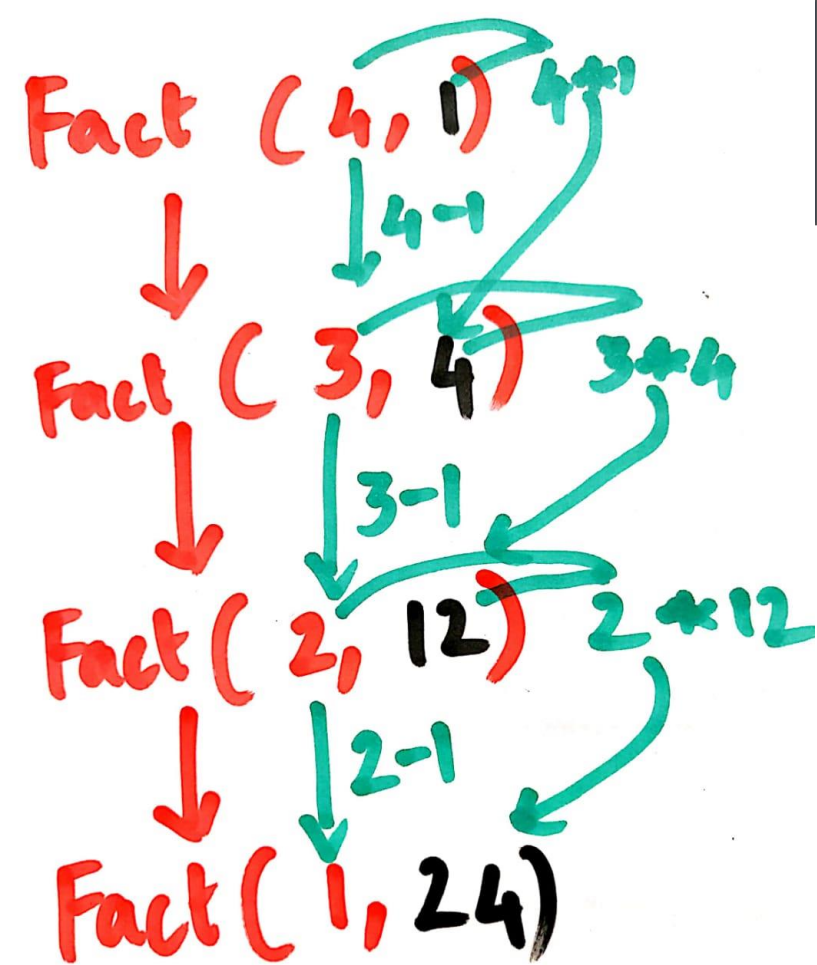 Fact (4, 1) 4*1
4-1
Fact (3, 4) 3*4
3-1
Fact (2, 12) 2*12
2-1
Fact (1, 24)